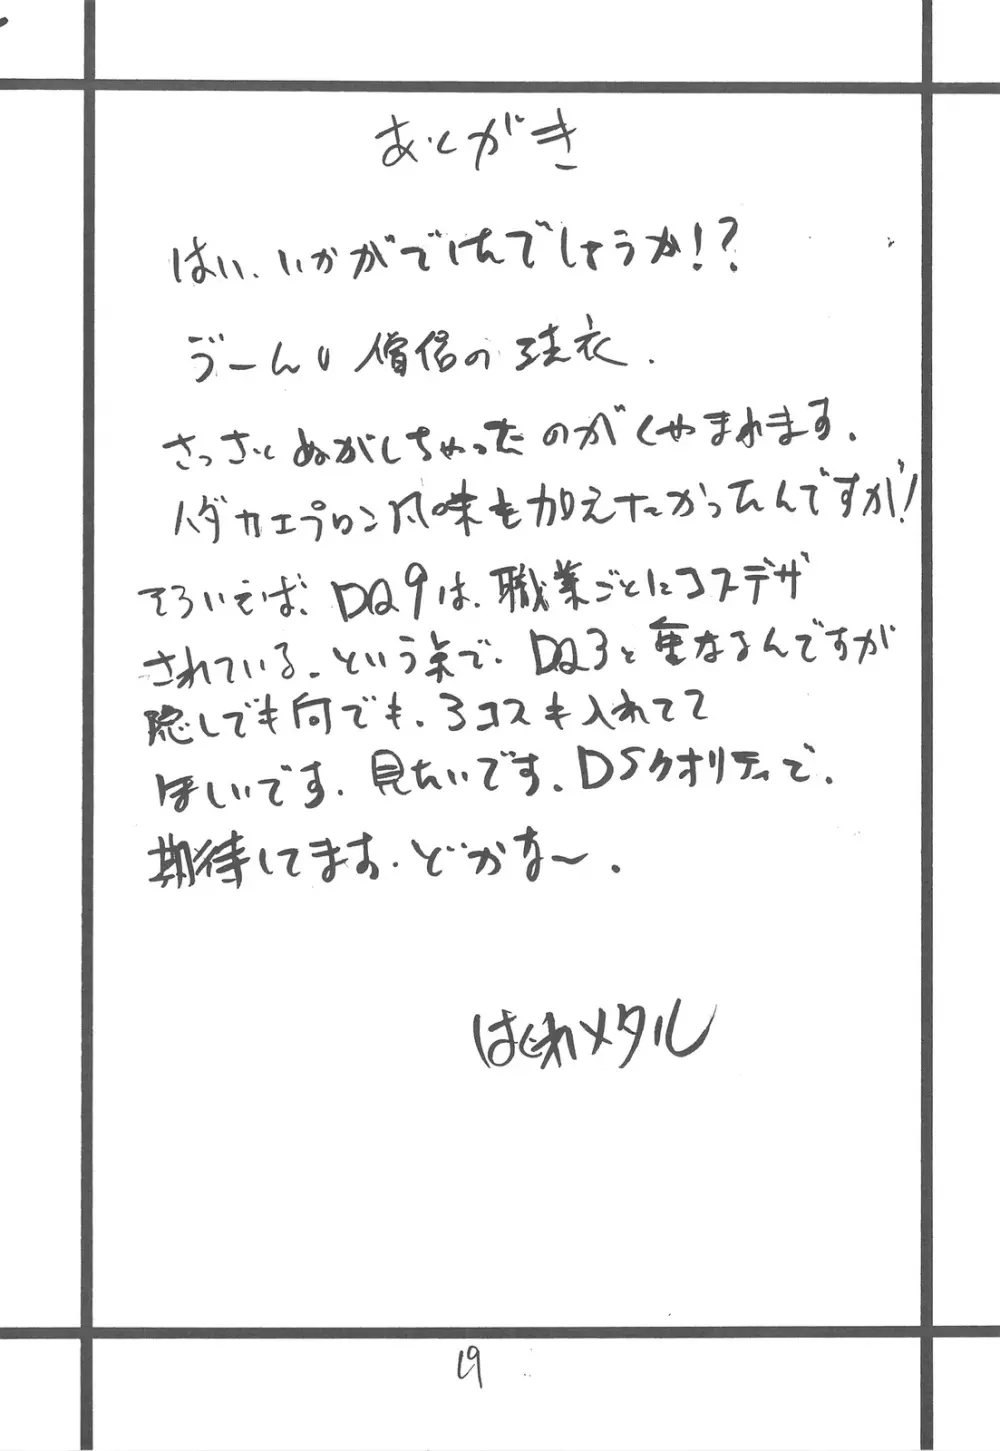 あとがき
はい、いかがでしたでしょうか!?
うーん 僧侶の 法衣.
さっさとぬがしちゃったのがくやまれます.
ハダカエプロン風味も加えたかったんですが!
そういえば、DQ9は、職業ごとにコスデザ
されている。という訳で、DQ3と重なるんですが
隠しでも何でも、3コスも入れてて
ほしいです. 見たいです. DSクオリティで.
期待してます. どかな〜.
はぐれメタル
19